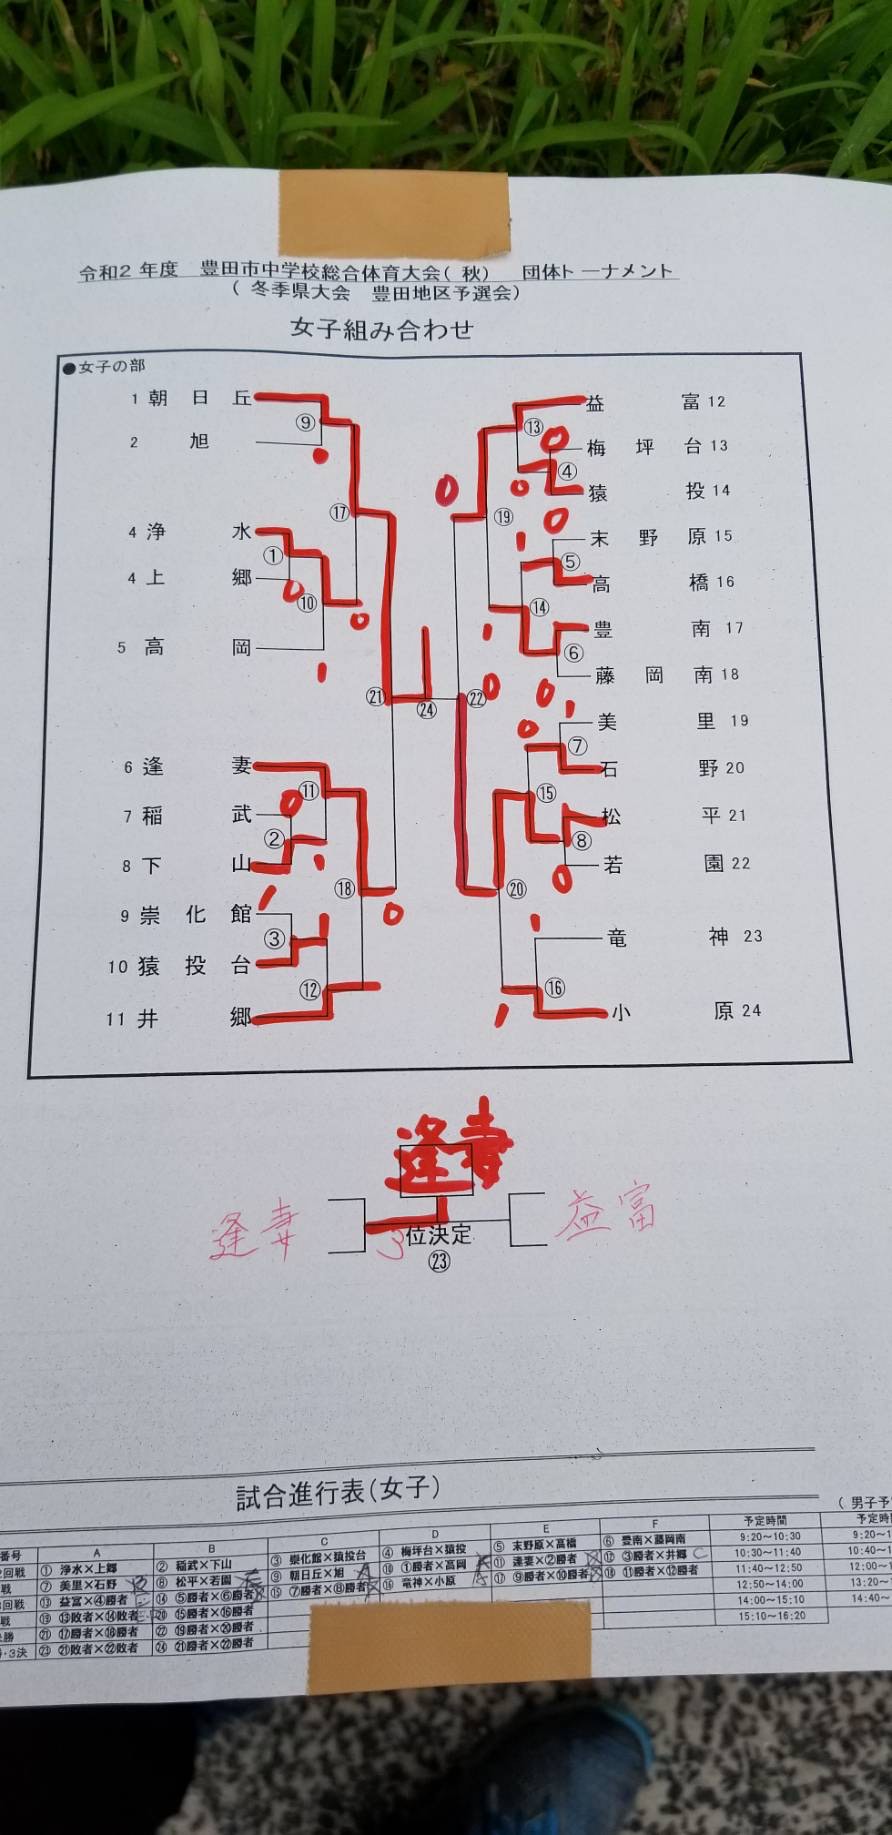 令和2年度 豊田市中学校総合体育大会(秋) 団体トーナメント
(冬季県大会 豊田地区予選会)
女子組み合わせ
●女子の部
1 朝日丘
2 旭
4 浄水
4 上郷
5 高岡
6 逢妻
7 稲武
8 下山
9 崇化館
10 猿投台
11 井郷
⑨
①
⑩
⑰
⑪
②
⑱
③
⑫
㉑
㉔
㉒
益富 12
梅坪台 13
猿投 14
末野原 15
高橋 16
豊南 17
藤岡南 18
美里 19
石野 20
松平 21
若園 22
竜神 23
小原 24
⑬
④
⑲
⑤
⑭
⑥
⑦
⑮
⑧
⑳
⑯
逢妻
逢妻
益富
3位決定
㉓
試合進行表(女子)
(男子予
番号 A B C D E F 予定時間 予定時
2回戦 ①浄水×上郷 ②稲武×下山 ③崇化館×猿投台 ④梅坪台×猿投 ⑤末野原×高橋 ⑥豊南×藤岡南 9:20～10:30 9:20～1
戦 ⑦美里×石野 ⑧松平×若園 ⑨朝日丘×旭 ⑩①勝者×高岡 ⑪逢妻×②勝者 ⑫③勝者×井郷 10:30～11:40 10:40～1
回戦 ⑬益富×④勝者 ⑭⑤勝者×⑥勝者 ⑮⑦勝者×⑧勝者 ⑯竜神×小原 ⑰⑨勝者×⑩勝者 ⑱⑪勝者×⑫勝者 11:40～12:50 12:00～1
戦 ⑲⑬敗者×⑭敗者 ⑳⑮勝者×⑯勝者 12:50～14:00 13:20～
勝 ㉑⑰勝者×⑱勝者 ㉒⑲勝者×⑳勝者 14:00～15:10 14:40～
・3決 ㉓㉑敗者×㉒敗者 ㉔㉑勝者×㉒勝者 15:10～16:20